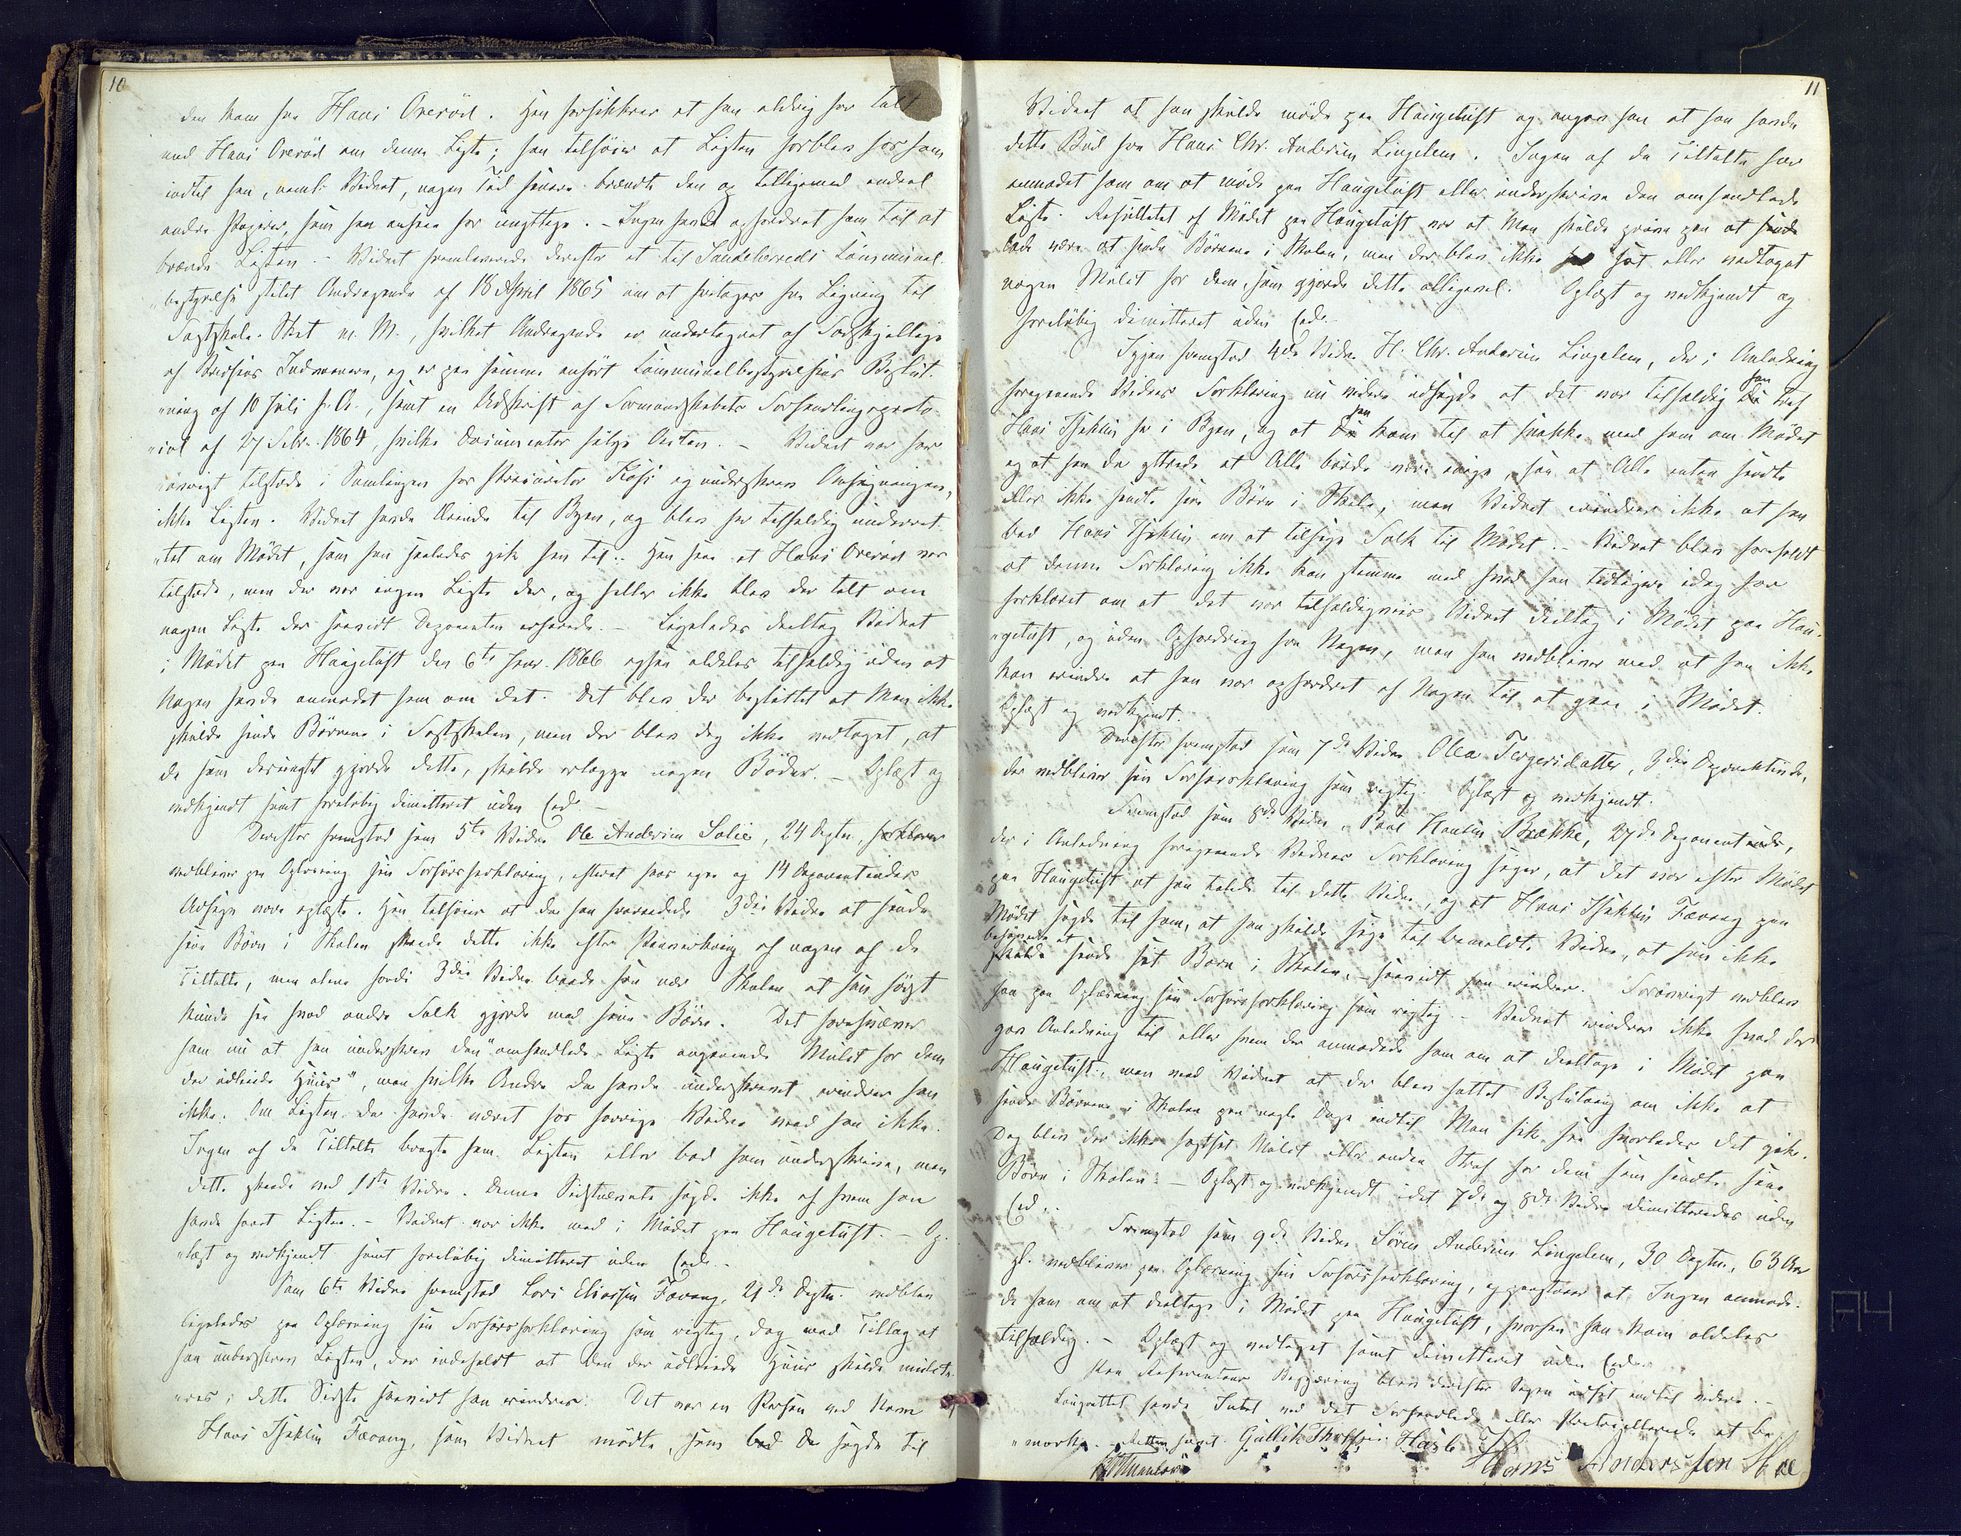 10
den kom fra Hans Orerød. Han forsikkrer at han aldrig har talt
med Hans Orerød om denne Liste; han tilføier at Listen forblev hos ham
indtil han, nemlig Vidnet, nogen Tid senere brændte den og tilligemed endeel
andre Papirer, som han ansaae for unyttige. – Ingen havde opfordret ham til at
brænde Listen. – Vidnet fremleverede derefter et til Sandeherreds Communal-
bestyrelse stilet Andragende af 18 April 1865 om at fritages fra Ligning til
Fastskole-Skat m. M., hvilket Andragende er undertegnet af Forskjellige
af Sognets Indvaanere, og er paa samme anført Communalbestyrelsens Beslut-
„ning af 10 Juli s. A., samt en Udskrift af Formandskabets Forhandlingsproto-
„col af 27 Febr. 1864, hvilke Documenter følge Acten. – Vidnet var for-
„øvrigt tilstede i Samlingen hos Procurator Koss og underskrev Ansøgningen,
ikke Listen. Vidnet havde Ærinde til Byen, og blev her tilfældig underret-
„tet om Mødet, som han saaledes gik hen til. Han saae at Hans Orerød var
tilstede, men der var ingen Liste der, og heller ikke blev der talt om
nogen Liste der saavidt Deponenten erfarede. – Ligeledes deeltog Vidnet
i Mødet paa Haugetuft den 6te Janr. 1866 ogsaa aldeles tilfældig uden at
Nogen havde anmodet ham om det. Det blev der besluttet at Man ikke
skulde sende Børnene i Fastskolen, men der blev dog ikke vedtaget, at
de som desuagtet gjorde dette, skulde erlægge nogen Bøder. – Oplæst og
vedkjendt samt foreløbig dimitteret uden Eed. –
Derefter fremstod som 5te Vidne Ole Andersen Solie, 24 Deptn., forklarer
vedbliver paa Oplæsning sin Forhørsforklaring, efterat hans egen og 14 Deponentindes
Udsagn vare oplæste. Han tilføier at da han fraraadede 3die Vidne at sende
sine Børn i Skolen skeede dette ikke efter Paavirkning af nogen af de
Tiltalte, men alene fordi 3die Vidne boede saa nær Skolen at hun først
kunde see hvad andre Folk gjorde med sine Børn. Det foresvæver
ham nu at han underskrev den omhandlede Liste angaaende Mulct for dem
der udleiede Huus", men hvilke Andre der havde underskrevet erindrer han
ikke. Om Listen da havde været hos forrige Vidne veed han ikke.
Ingen af de Tiltalte bragte ham Listen eller bad ham underskrive, men
dette skeede ved 1ste Vidne. Denne Sidstnævnte sagde ikke af hvem han
havde faaet Listen. – Vidnet var ikke med i Mødet paa Haugetuft. – Op-
„læst og vedkjendt samt foreløbig dimitteret uden Eed. –
Som 6te Vidne fremstod Lars Eliassen Færang, 21de Deptn. vedblev
ligeledes paa Oplæsning sin Forhørsforklaring som rigtig, dog med Tillæg at
han underskrev Listen, der indeholdt at den der udleiede Huus skulde mulcte-
„res i dette Sidste saavidt han erindrer. Det var en Person ved Navn
Hans Isaksen Færang, som Vidnet mødte, som bad der sagde til
11
Vidnet at han skulde møde paa Haugetuft og angav han at han havde
dette Bud fra Hans Chr. Andersen Lingelem. Ingen af de Tiltalte har
anmodet ham om at møde paa Haugetuft eller underskrive den omhandlede
Liste. Resultatet af Mødet paa Haugetuft var at Man skulde prøve paa at sende
lade være at sende Børnene i Skolen, men der blev ikke sat eller vedtaget
nogen Mulct for dem, som gjorde dette alligevel. Oplæst og vedkjendt og
foreløbig dimitteret uden Eed. –
Igjen fremstod 4de Vidne H. Chr. Andersen Lingelem, der i Anledning
foregaaende Vidnes Forklaring nu videre udsagde at det var tilfældig han traf
Hans Isaksen her i Byen, og at han kom til at snakke med ham om Mødet
og at han da yttrede at Alle burde være enige, saa at Alle enten sendte
eller ikke sendte sine Børn i Skole, men Vidnet erindrer ikke at han
bad Hans Isaksen om at tilsige Folk til Mødet. – Vidnet blev foreholdt
at denne Forklaring ikke kan stemme med hvad han tidligere idag har
forklaret om at det var tilfældigviis Vidnet deeltog i Mødet paa Hau-
„getuft, og uden Opfordring fra Nogen, men han vedbliver med at han ikke
kan erindre at han var opfordret af Nogen til at gaae i Mødet.
Oplæst og vedkjendt.
Derefter fremstod som 7de Vidne Olea Tergersdatter, 3die Deponentinde,
der vedbliver sin Forhørsforklaring som rigtig. Oplæst og vedkjendt.
Fremstod som 8de Vidne, Poul Hansen Brække, 27de Deponentinde,
der i Anledning foregaaende Vidnes Forklaring siger, at det var efter Mødet
paa Haugetuft at han talede til dette Vidne, og at Hans Isaksen Færang paa
Mødet sagde til ham, at han skulde sige til bemeldte Vidne, at hun ikke
behøvede at
skulde sende sit Barn i Skolen, – saavidt han erindrer. Forøvrigt vedblev
han paa Oplæsning sin Forhørsforklaring som rigtig. – Vidnet erindrer ikke hvad der
gav Anledning til eller hvem der anmodede ham om at deeltage i Mødet paa
Haugetuft, men veed Vidnet at der blev fattet Beslutning om ikke at
sende Børnene i Skolen paa nogle Dage indtil Man fik see hvorledes det gik.
Dog blev der ikke fastsat Mulct eller anden Straf for dem som sendte sine
Børn i Skolen. – Oplæst og vedkjendt idet 7de og 8de Vidne dimitteredes uden
Eed. –
Fremstod som 9de Vidne Søren Andersen Lingelem, 30 Deptn., 63 Aar
gl. vedbliver paa Oplæsning sin Forhørsforklaring, og paastaaer at Ingen anmode-
de ham om at deeltage i Mødet paa Haugetuft, hvorhen han kom aldeles
tilfældig. – Oplæst og vedtaget samt dimitteret uden Eed. –
Paa Referentens Begjæring blev derefter Sagen udsat indtil videre. –
Laugrettet havde Intet ved det Forhandlede eller Protocollerede at be-
„mærke. Retten hævet. Gullik Thoresen Hasle Hans Anderssen